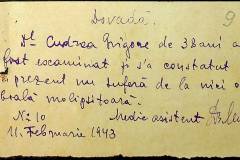 Dovadă.
9
Dl. Cudrea Grigore de 38 ani a
fost examinat și s'a constatat
prezent nu suferă de la nici o
boală molipsitoare.
No 10 Medic asistent
11. Februarie 1943